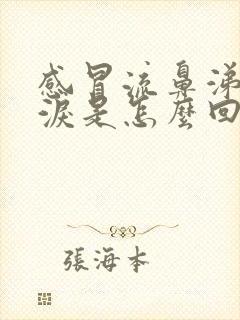 感冒流鼻涕
淚是怎麼回
張海本